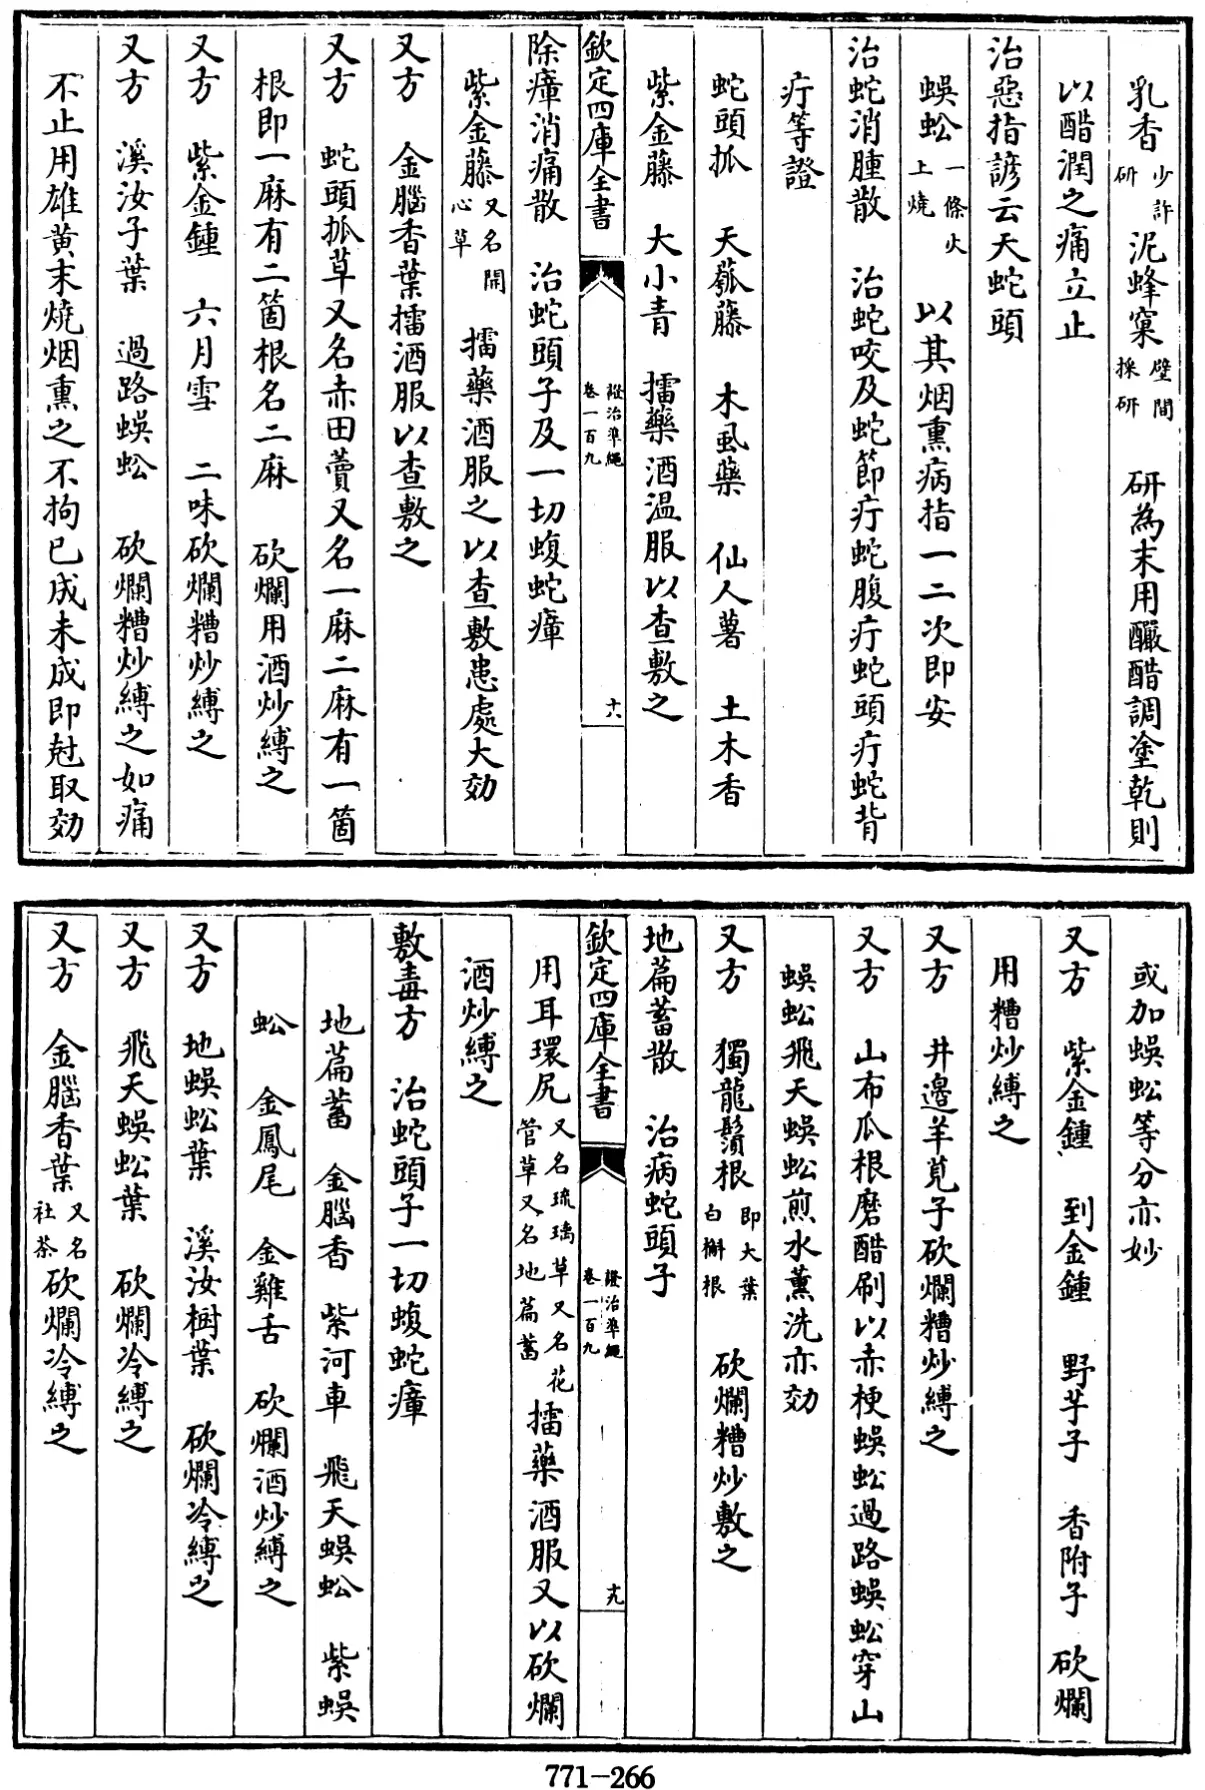 乳香少許研 泥蜂窠壁間採研 研為末用釅醋調塗乾則
以醋潤之痛立止
治惡指諺云天蛇頭
蜈蚣一條火上燒 以其烟熏病指一二次即安
治蛇消腫散 治蛇咬及蛇節疔蛇腹疔蛇頭疔蛇背
疔等證
蛇頭抓 天瓠藤 木虱藥 仙人薯 土木香
紫金藤 大小青 擂藥酒温服以查敷之
欽定四庫全書 證治準繩卷一百九 十八
除㾮消痛散 治蛇頭子及一切蝮蛇㾮
紫金藤又名開心草 擂藥酒服之以查敷患處大効
又方 金腦香葉擂酒服以查敷之
又方 蛇頭抓草又名赤田䕡又名一麻二麻有一箇
根即一麻有二箇根名二麻 砍爛用酒炒縛之
又方 紫金鍾 六月雪 二味砍爛糟炒縛之
又方 溪汝子葉 過路蜈蚣 砍爛糟炒縛之如痛
不止用雄黄末燒烟熏之不拘已成未成即尅取効
或加蜈蚣等分亦妙
又方 紫金鍾 到金鍾 野芋子 香附子 砍爛
用糟炒縛之
又方 井邉羊莧子砍爛糟炒縛之
又方 山布瓜根磨醋刷以赤梗蜈蚣過路蜈蚣穿山
蜈蚣飛天蜈蚣煎水薰洗亦効
又方 獨龍鬚根即大葉白槲根 砍爛糟炒敷之
地萹蓄散 治病蛇頭子
欽定四庫全書 證治準繩卷一百九 十九
用耳環尻又名琉璃草又名花管草又名地萹蓄 擂藥酒服又以砍爛
酒炒縛之
敷毒方 治蛇頭子一切蝮蛇㾮
地萹蓄 金腦香 紫河車 飛天蜈蚣 紫蜈
蚣 金鳳尾 金雞舌 砍爛酒炒縛之
又方 地蜈蚣葉 溪汝樹葉 砍爛冷縛之
又方 飛天蜈蚣葉 砍爛冷縛之
又方 金腦香葉又名社茶 砍爛冷縛之
771-266